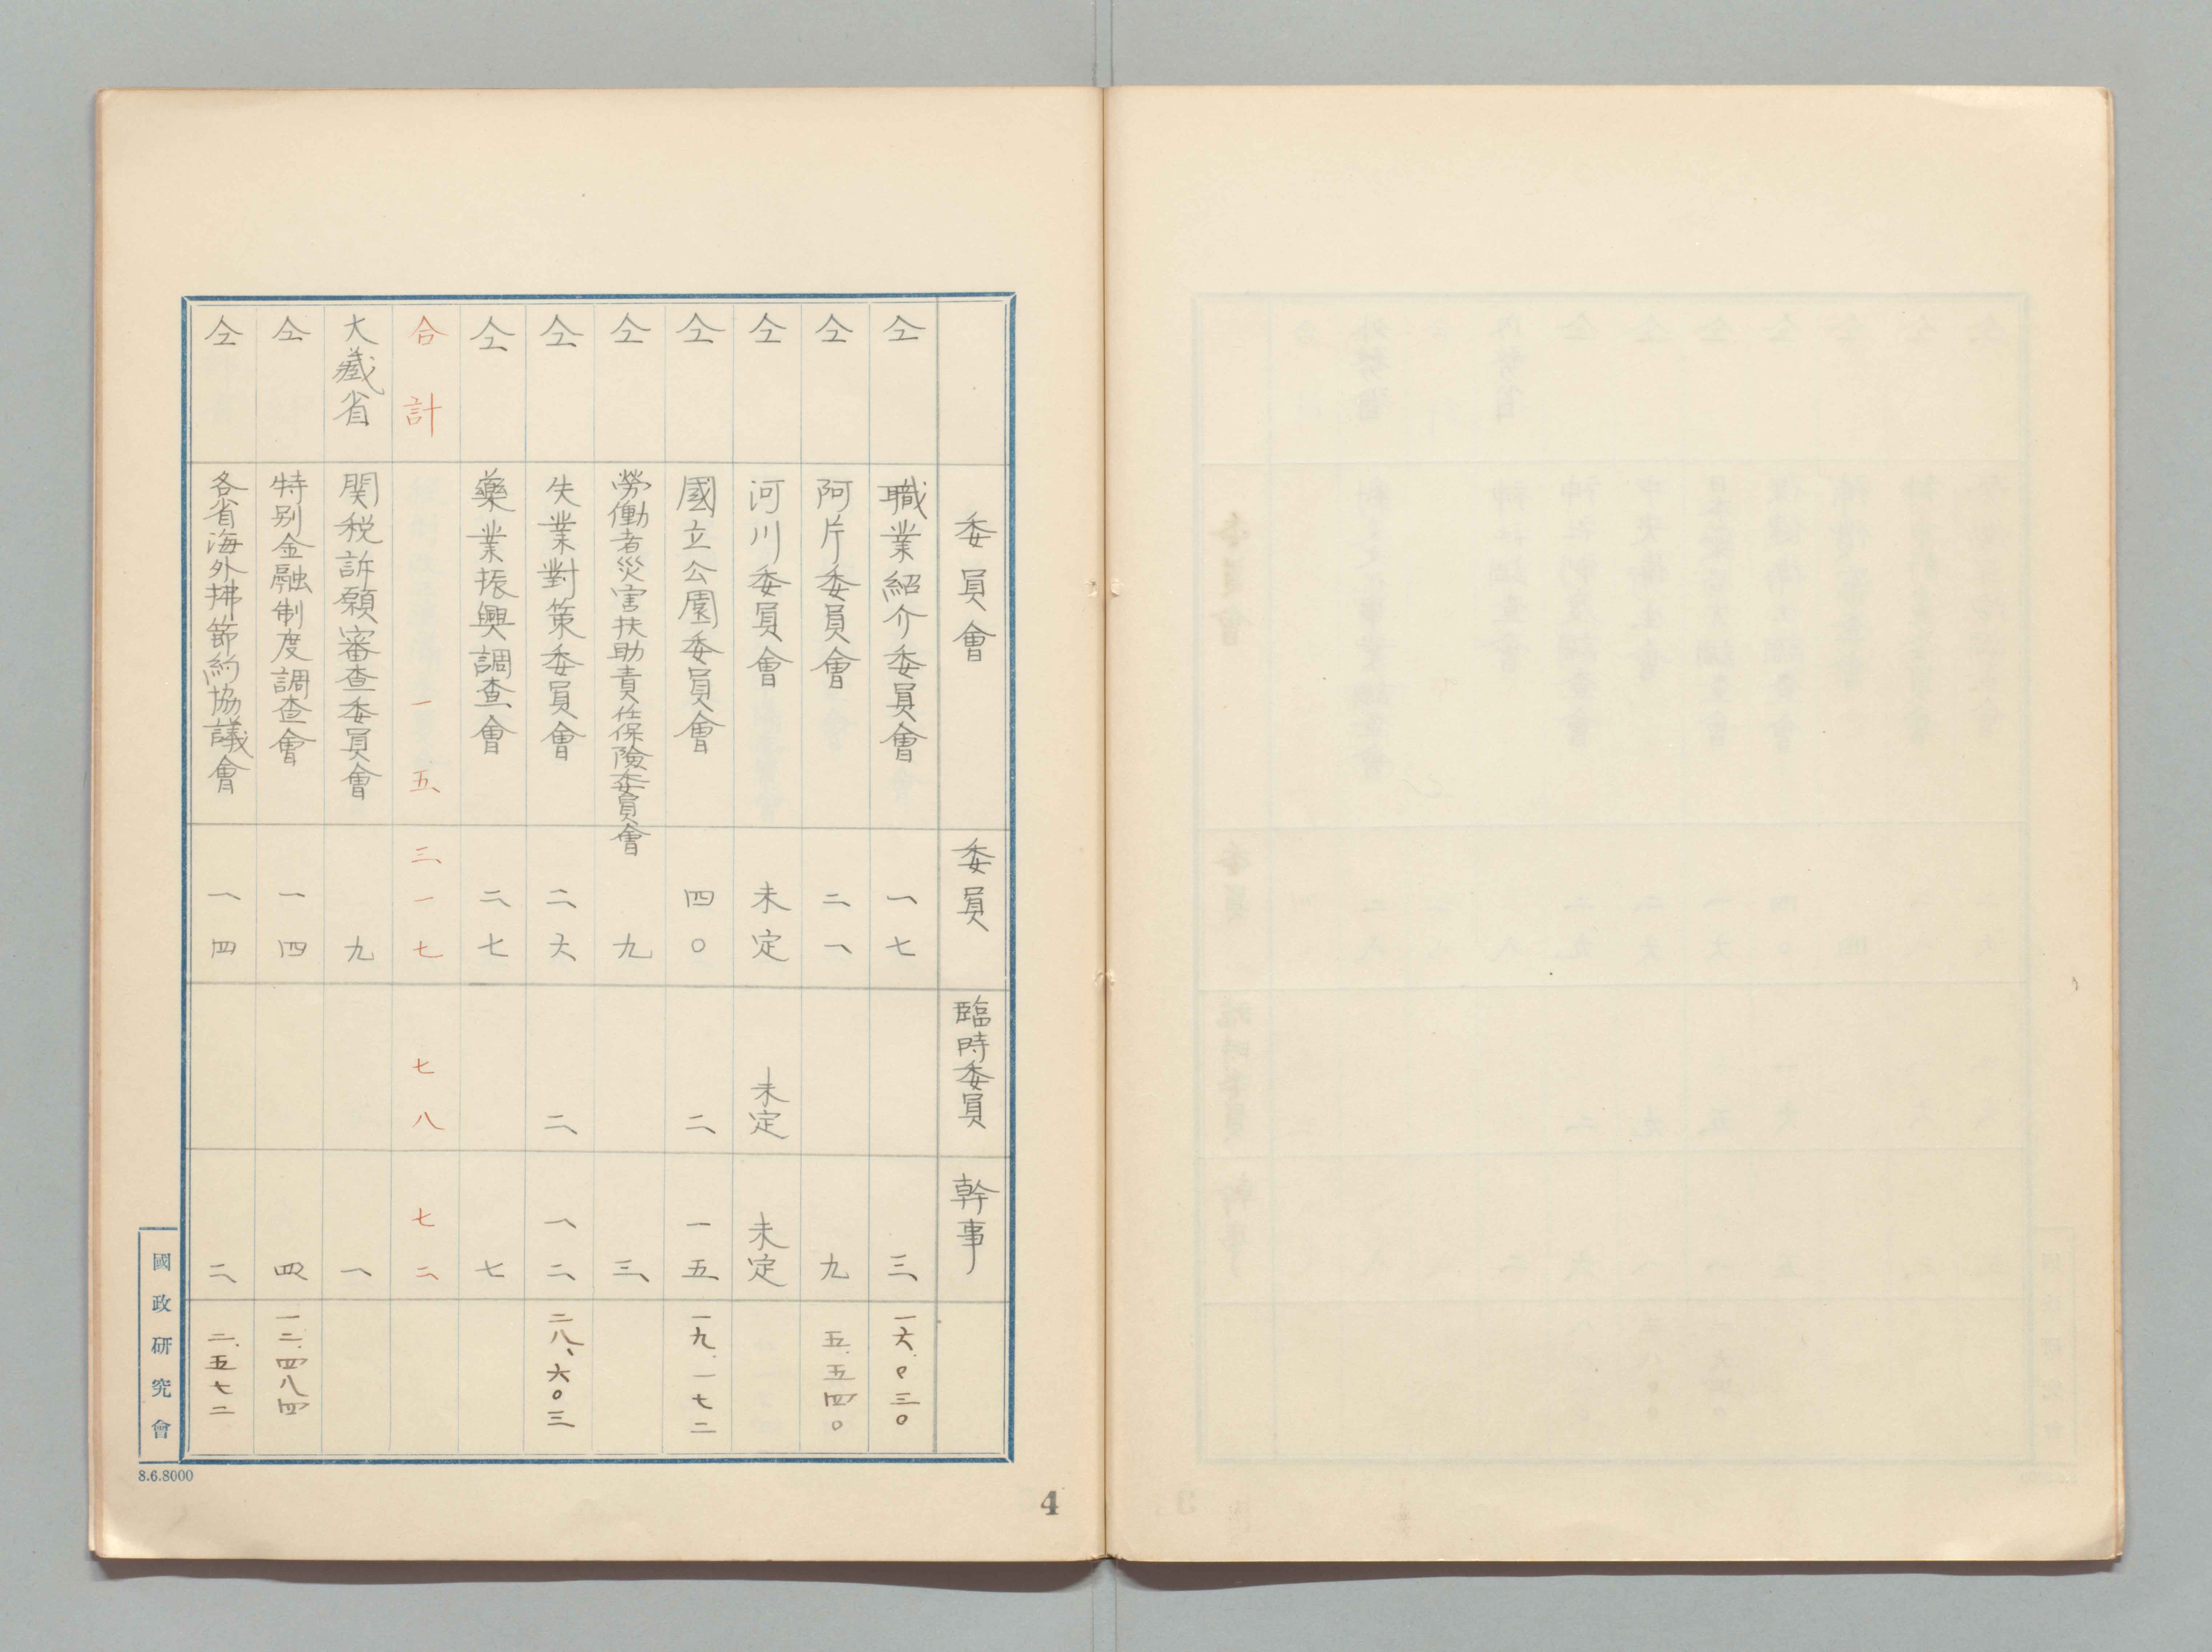 委員會 委員 臨時委員 幹事
仝 職業紹介委員會 一七 三 一六.〇三〇
仝 阿片委員會 二一 九 五.五四〇
仝 河川委員會 未定 未定 未定
仝 國立公園委員會 四〇 二 一五 一九.一七二
仝 勞働者災害扶助責任保險委員會 九 三
仝 失業對策委員會 二六 二 一二 二八、六〇三
仝 藥業振興調查會 二七 七
合計 一五 三一七 七八 七二
大藏省 関税訴願審查委員會 九 一
仝 特别金融制度調查會 一四 四 一二.四八四
仝 各省海外拂節約協議會 一四 二 二.五七二
國政研究會
8.6.8000
4